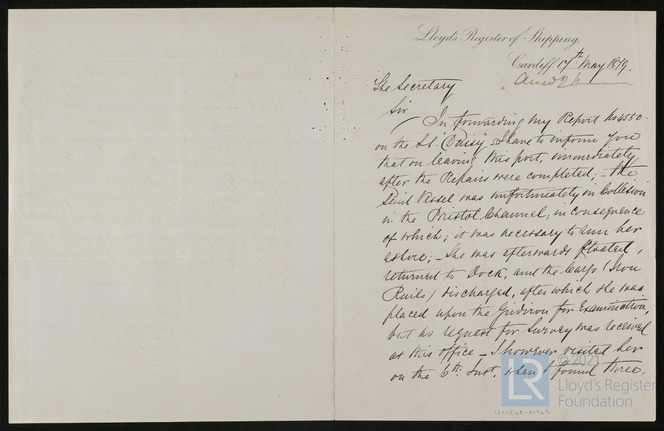 Lloyd's Register of Shipping.
Cardiff 17th May 1879.
The Secretary
Sir
In forwarding my Report No 4550
on the S.S. "Daisy", I have to inform you
that on leaving this port, immediately
after the Repairs were completed; - the
said Vessel was unfortunately in Collision
in the Bristol Channel, in consequence
of which; it was necessary to run her
ashore; - She was afterwards floated,
returned to Dock, and the Cargo (Iron
Rails) discharged, after which she was
placed upon the Gridiron for Examination,
but no request for Survey was received
at this office - I however visited her
on the 6th Inst, when I found three,
© 2021
LR
Lloyd's Register
Foundation